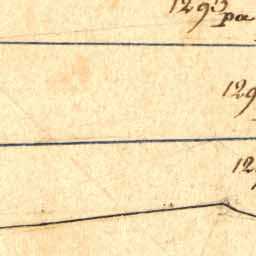 1293
pa
129
12